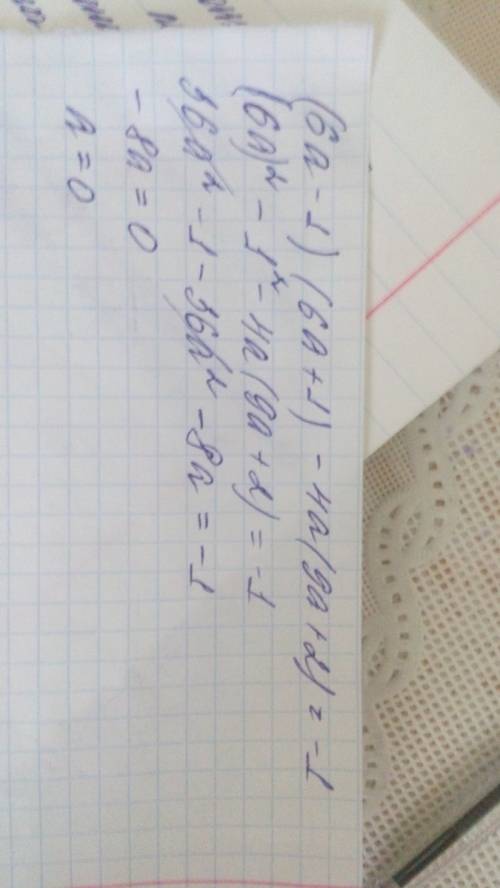 (6a - 1) (6a + 1) - 4a(9a + 2) = -1
(6a)² - 1² - 4a(9a + 2) = -1
36a² - 1 - 36a² - 8a = -1
- 8a = 0
a = 0